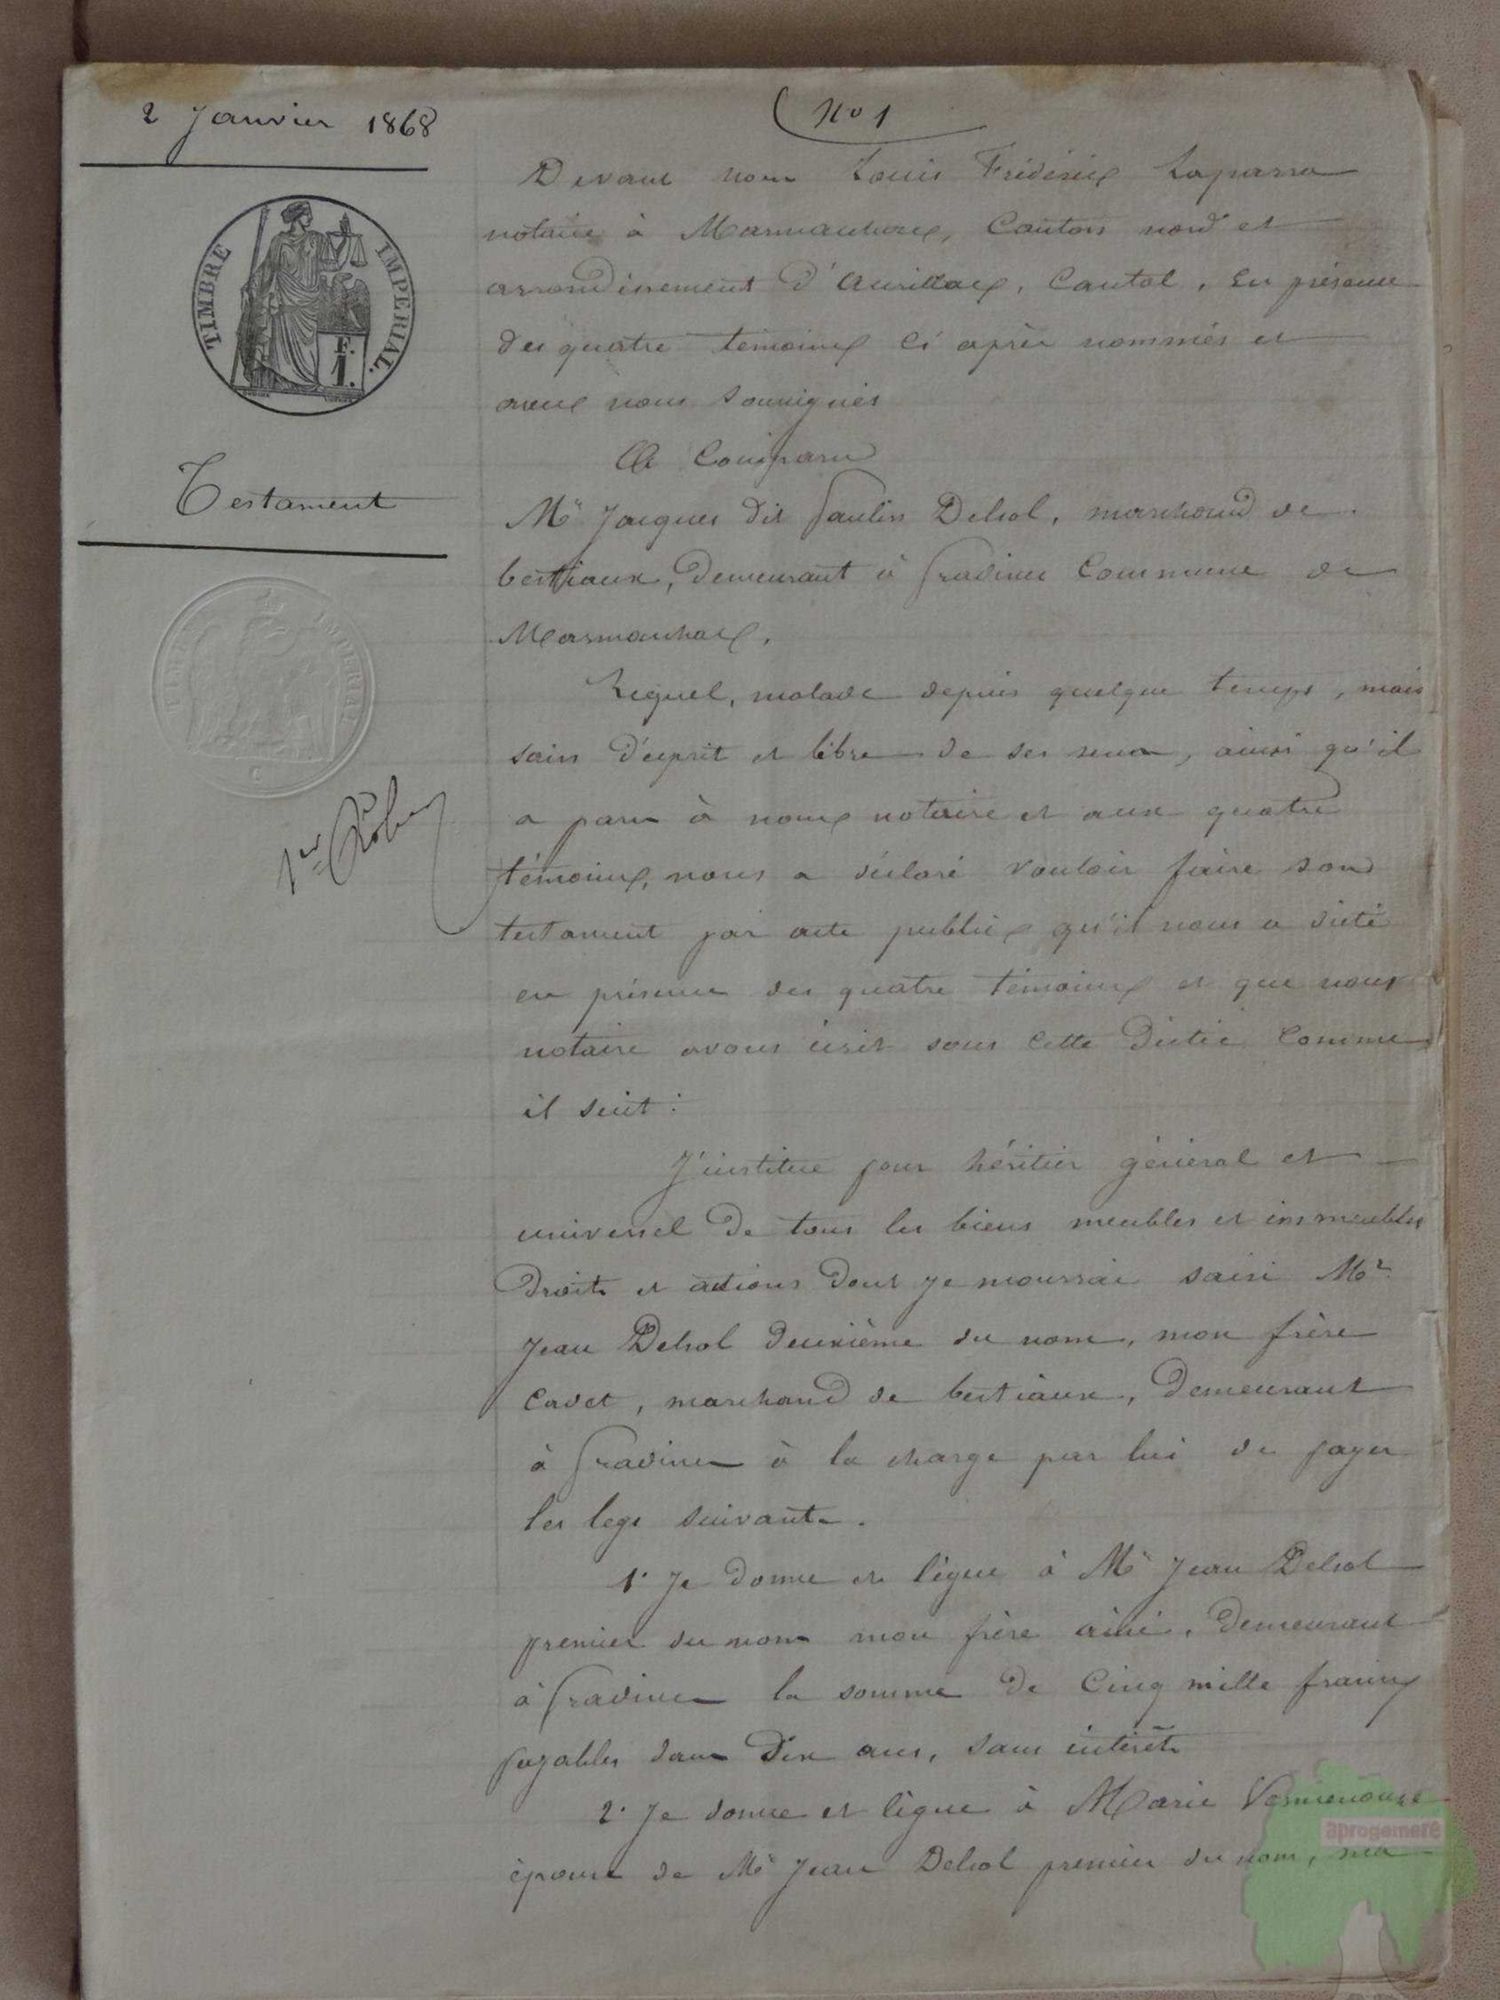 2 Janvier 1868
No 1
TIMBRE IMPERIAL.
F.
1.
Testament
1er
Devant nous Louis Frédéric Laparra
notaire à Marmanhac, Canton nord et
arrondissement d'Aurillac, Cantal, En présence
des quatre témoins ci après nommés et
avec nous soussignés
A Comparu
Mr Jacques dit Paulin Delsol, marchand de
bestiaux, demeurant à Gradines Commune de
Marmanhac.
Lequel, malade depuis quelque temps, mais
sain d'esprit et libre de ses sens, ainsi qu'il
a paru à nous notaire et aux quatre
témoins, nous a déclaré vouloir faire son
testament par acte public qu'il nous a dicté
en présence des quatre témoins et que nous
notaire avons écrit sous cette dictée comme
il suit :
J'institue pour héritier général et
universel de tous les biens meubles et immeubles
droits et actions dont je mourrai saisi Mr
Jean Delsol deuxième du nom, mon frère
Cadet, marchand de bestiaux, demeurant
à Gradines à la charge par lui de payer
les legs suivants.
1° Je donne et lègue à Mr Jean Delsol
premier du nom mon frère ainé, demeurant
à Gradines la somme de Cinq mille francs
payables dans dix ans, sans intérêts
2° Je donne et lègue à Marie Vermenouze
épouse de Mr Jean Delsol premier du nom, ma
aprogemere